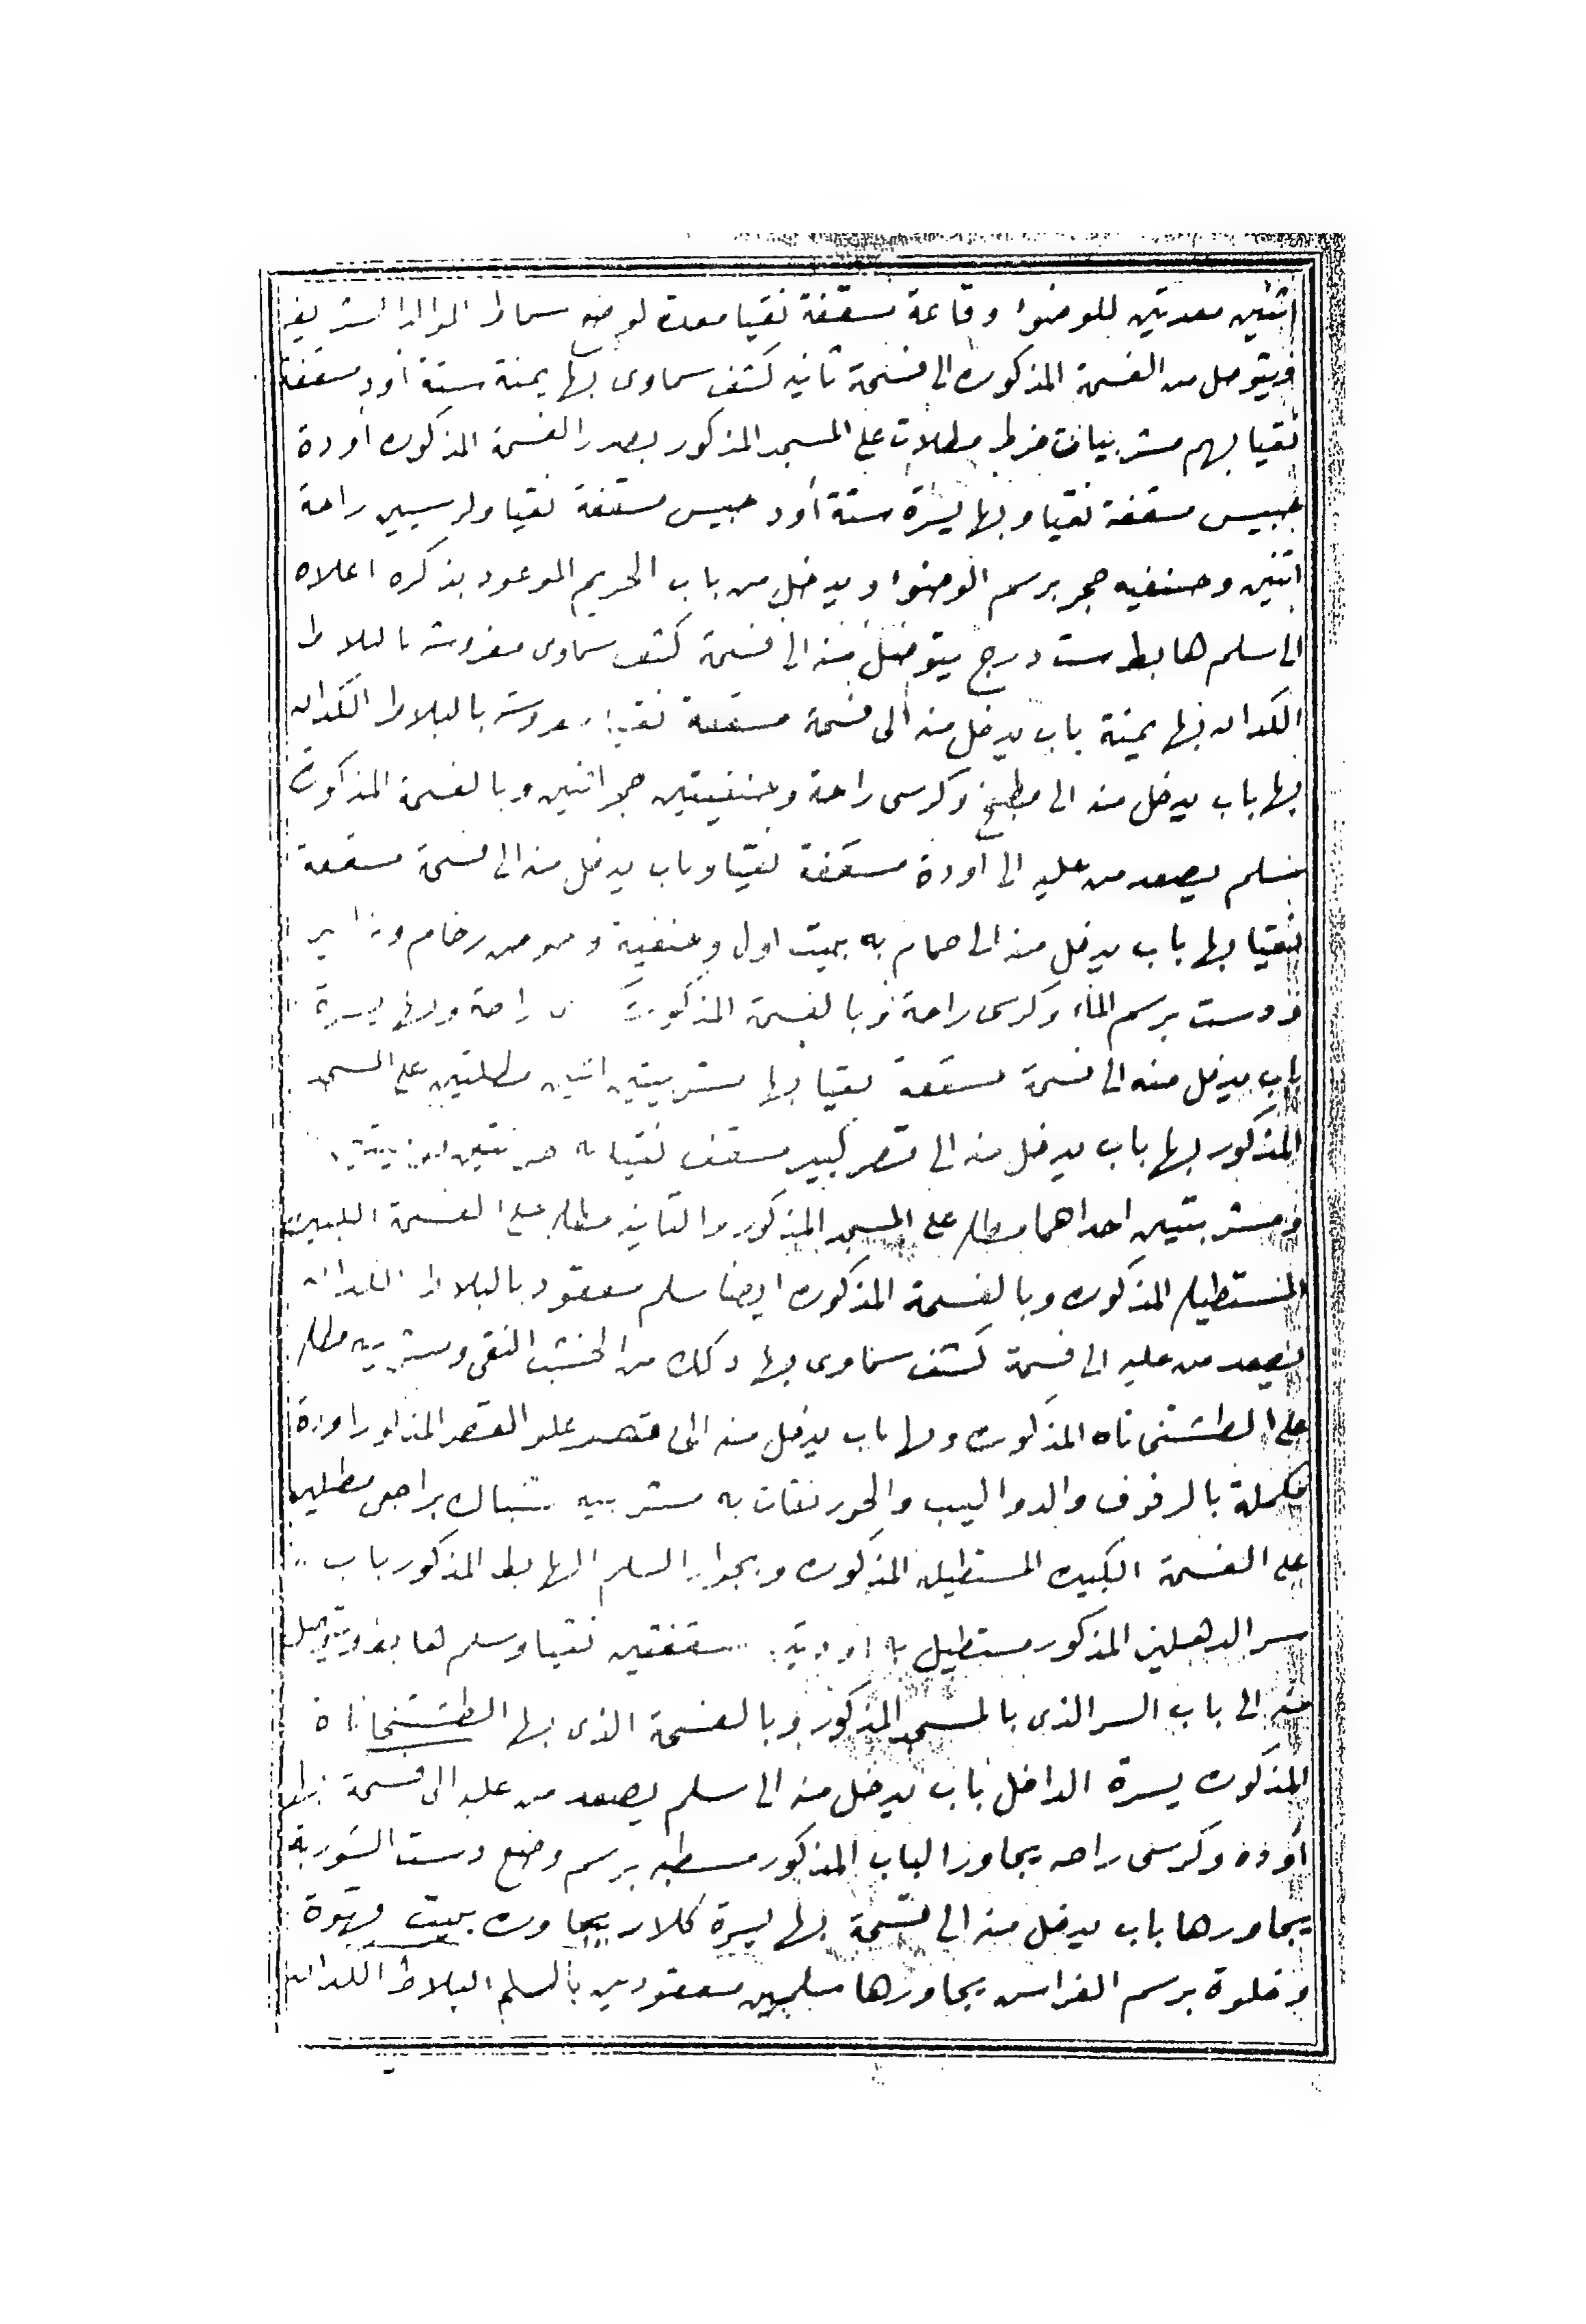 اثنين معدتين للوضوا وقاعة مسقفة نقيا معدة لوضع سماط الموالد الشريفه
ويتوصل من الفسحة المذكوره الى فسحة ثانيه كشف سماوى بها يمنة ستة أود مسقفة
نقيا بهم مشربيات خرط مطلات على المسجد المذكور بصدر الفسحة المذكوره أودة
حبيس مسقفة نقيا وبها يسرة ستة أود حبيس مسقفة نقيا وكرسيين راحة
اثنين وحنفيه حجر برسم الوضوا ويدخل من باب الحريم الموعود بذكره اعلاه
الى سلم هابط ست درج يتوصل منه الى فسحة كشف سماوى مفروشه بالبلاط
الكدان بها يمنة باب يدخل منه الى فسحة مسقفة نقيا مفروشه بالبلاط الكدان
بها باب يدخل منه الى مطبخ وكرسى راحة وحنفيتين حجر اثنين وبالفسحة المذكورة
سلم يصعد من عليه الى أودة مسقفة نقيا وباب يدخل منه الى فسحة مسقفة
نقيا بها باب يدخل منه الى حمام به بيت اول وحنفية وحوض رخام
ودست برسم الماء وكرسى راحة وبالفسحة المذكورة راحة وبها يسرة
باب يدخل منه الى فسحة مسقفة نقيا بها مشربيتين اثنين مطلتين على المسجد
المذكور بها باب يدخل منه الى قصر كبير مسقف نقيا به
ومشربتين احداهما مطله على المسجد المذكور والثانيه مطله على الفسحة الكبيره
المستطيله المذكوره وبالفسحة المذكوره ايضا سلم معقود بالبلاط الكدان
يصعد من عليه الى فسحة كشف سماوى بها دكك من الخشب النقى ومشربيه مطله
على الطشتخاناه المذكوره وبها باب يدخل منه الى قصر علو القصر المذكور اودة
مكملة بالرفوف والدواليب والخورنقات به مشربيه شباك براجى مطلين
على الفسحة الكبيره المستطيله المذكوره وبجوار السلم الهابط المذكور باب
سر الدهليز المذكور مستطيل به اودتين مسقفتين نقيا وسلم هابط ويتوصل
منه الى باب السر الذى بالمسجد المذكور وبالفسحة الذى بها الطشتخاناة
المذكوره يسرة الداخل باب يدخل منه الى سلم يصعد من عليه الى فسحة بها
أوده وكرسى راحه يجاور الباب المذكور مسطبه برسم وضع دست الشوربة
يجاورها باب يدخل منه الى فسحة بها يسرة كلار يجاوره بيت قهوة
وخلوة برسم الفراس يجاورها سلمين معقودين بالسلم البلاط الكدان